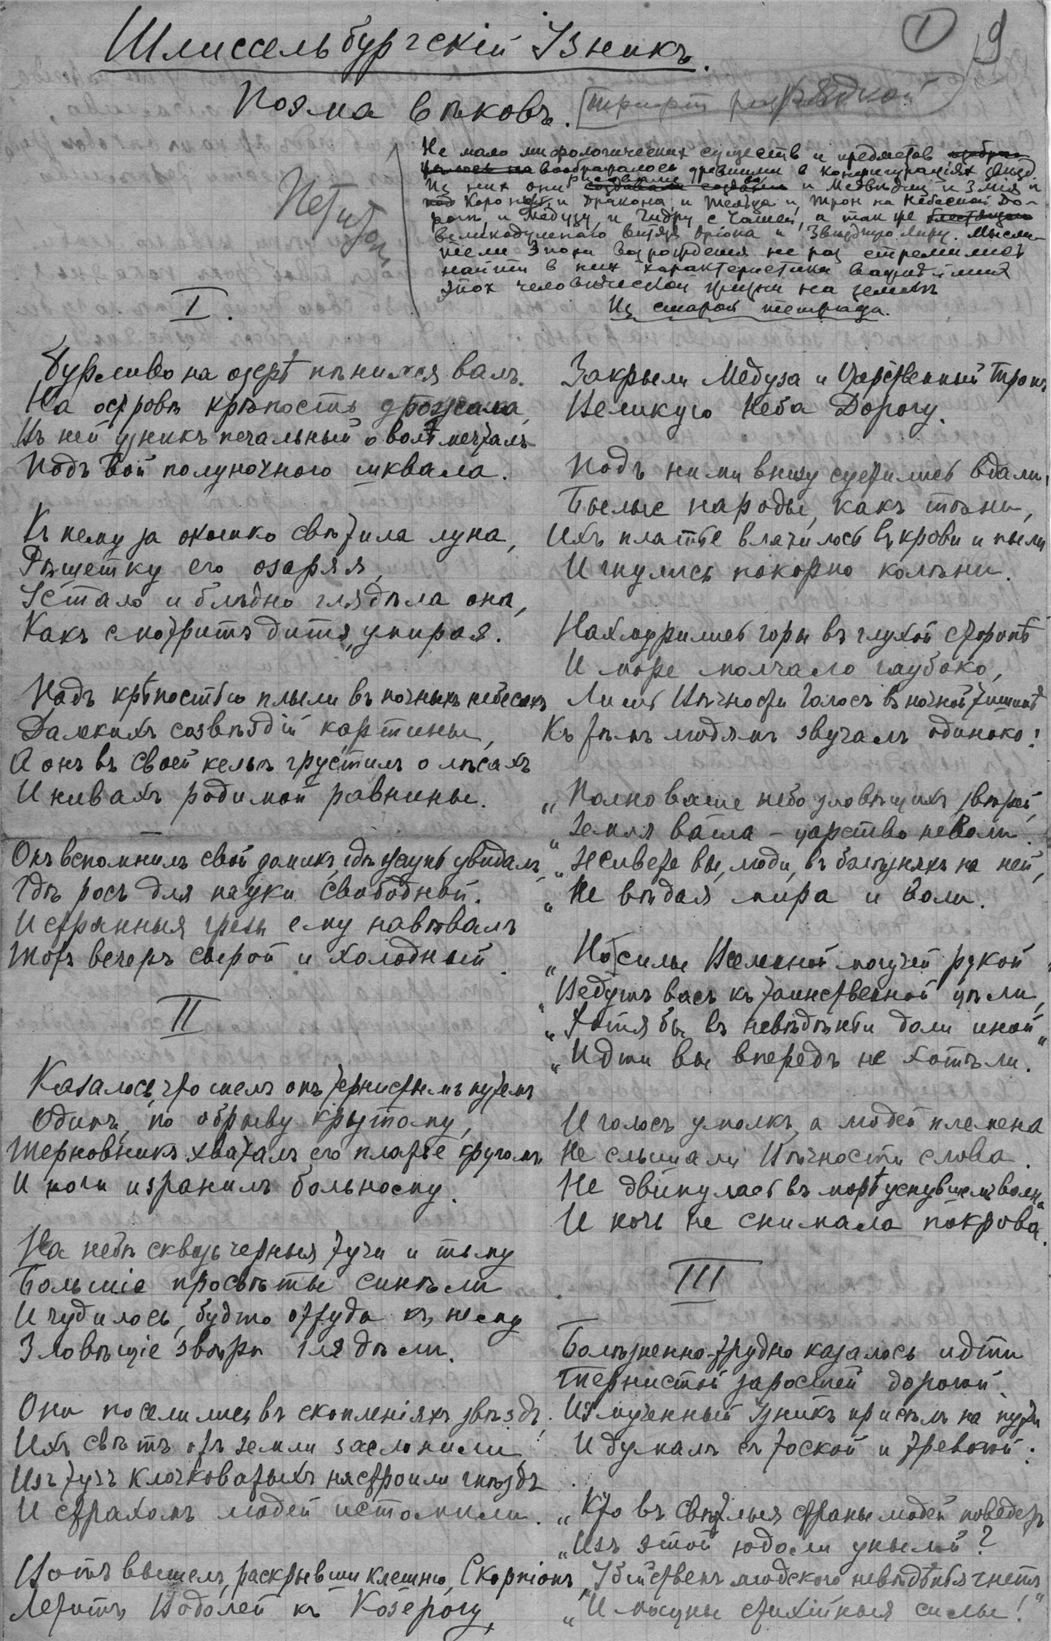 Шлиссельбургскій Узникъ.
① 9
Поэма вѣковъ.
Петитом
Не мало мифологическихъ существ и предметов
воображалось древними в конфигураціях звѣзд.
Из них они и Медвѣдиц и Змѣя и
Корону и Дракона и Тельца и Трон на Небесной До-
роге и Медузу и Гидру с Чашей, а так же
великодушного витязя Оріона и Звѣздную Лиру. Мысли-
тели Эпохи Возрожденія не раз стремились
найти в них характеристики
эпох человѣческой жизни на землѣ
Из старой тетради.
I.
Бурливо на озерѣ пѣнился валъ.
На островѣ крѣпость дрожала,
Въ ней узникъ печальный о волѣ мечталъ
Подъ вой полуночного шквала.
Къ нему за окошко свѣтила луна,
Рѣшетку его озаряя,
Устало и блѣдно глядѣла она,
Какъ смотритъ дитя, умирая.
Надъ крѣпостью плыли въ ночныхъ небесахъ
Далекихъ созвѣздій картины,
А онъ въ своей кельѣ грустилъ о лѣсахъ
И нивахъ родимой равнины.
Онъ вспомнилъ свой домикъ, гдѣ юсунь увидалъ,
Гдѣ росъ для науки свободной.
И странныя грезы ему навѣвалъ
Тотъ вечеръ сырой и холодный.
II
Казалось, что шелъ онъ тернистымъ путемъ
Одинъ, по обрыву крутому,
Терновникъ хваталъ его платье кругомъ
И ноги изранилъ больному.
На небѣ сквозь черныя тучи и тьму
Большіе просвѣты синѣли
И чудилось, будто оттуда къ нему
Зловѣщіе звѣри глядѣли.
Они поселились въ скопленіяхъ звѣздъ.
Ихъ свѣтъ отъ земли заслонили!
Изъ тучъ клочковатыхъ настроили гнѣздъ
И страхомъ людей истомили.
Вотъ вышелъ, раскрывши клешню, Скорпіонъ,
Летитъ Водолей къ Козерогу,
Закрыли Медуза и Царственный Тронъ
Великую Неба Дорогу.
Подъ ними внизу суетились вдали,
Былые народы, какъ тѣни,
Ихъ платье влачилось въ крови и пыли
И гнулись покорно колѣни.
Нахмурились горы въ глухой сторонѣ
И море молчало глубоко,
Лишь Вѣчности голосъ въ ночной тишинѣ
Къ тѣмъ людямъ звучалъ одиноко:
„Полно ваше небо зловѣщихъ звѣрей,
„Земля ваша – царство неволи.
„Живете вы, люди, въ болѣзняхъ на ней,
„Не вѣдая мира и воли.
„Но силы Вселенной могучей рукой
„Ведутъ васъ къ таинственной цѣли,
„Хотя бы въ невѣдѣньи доли иной
„Идти вы впередъ не хотѣли."
И голосъ умолкъ, а людей племена
Не слышали Вѣчности слова.
Не двинулась въ морѣ уснувшемъ волна
И ночь не снимала покрова.
III
Болѣзненно-трудно казалось идти
Тернистой заросшей дорогой.
Измученный Узникъ присѣлъ на пути
И думалъ съ тоской и тревогой:
„Кто въ свѣтлыя страны людей поведетъ
„Изъ этой юдоли унылой?
„Убійственъ людского невѣдѣнья гнетъ
„И могучи стихійныя силы!"